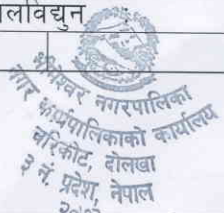 लविद्युन
भीमेश्वर नगरपालिका
नगर कार्यपालिकाको कार्यालय
चरिकोट, दोलखा
३ नं. प्रदेश, नेपाल